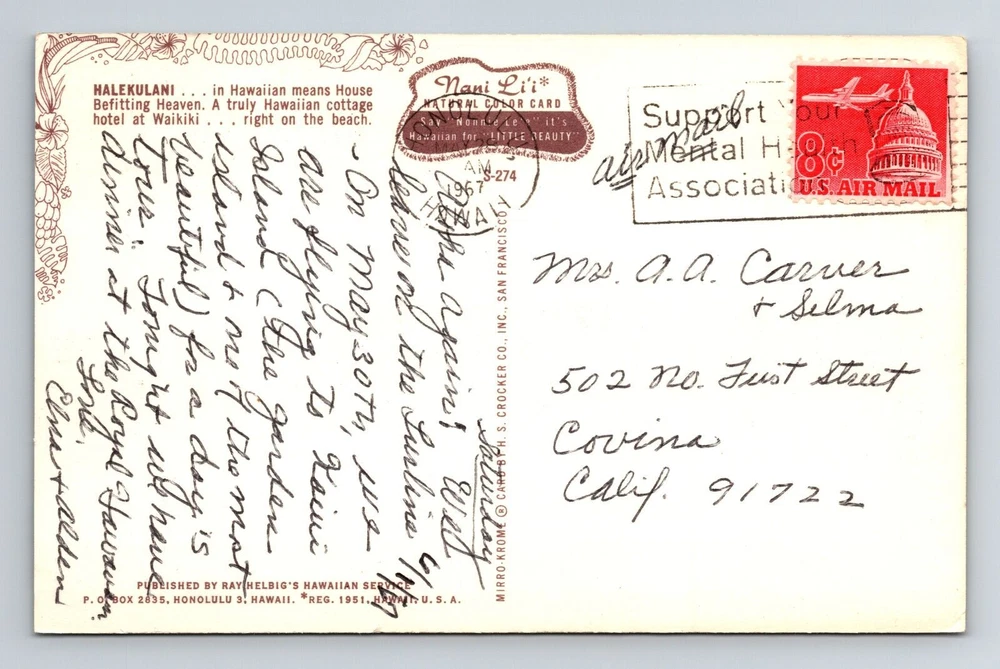 HALEKULANI . . . in Hawaiian means House
Befitting Heaven. A truly Hawaiian cottage
hotel at Waikiki . . . right on the beach.
Nani Li'i*
NATURAL COLOR CARD
Say "Nonnie Lee" it's
Hawaiian for "LITTLE BEAUTY"
S-274
AM
1967
HAWAII
Support Your
Mental Health
Association
air mail
8¢
U.S. AIR MAIL
Saturday
again! Will
leave on the Lurline 6/1/67
- On May 30th, we
are flying to Kauai
Island (the garden
island & most
beautiful) for a day's
tour. Tonight will have
dinner at the Royal Hawaiian.
Love,
Elna & Alden
Mrs. A. A. Carver
& Selma
502 No. First Street
Covina
Calif. 91722
MIRRO-KROME ® CARD BY H. S. CROCKER CO., INC., SAN FRANCISCO
PUBLISHED BY RAY HELBIG'S HAWAIIAN SERVICE
P. O. BOX 2835, HONOLULU 3, HAWAII. *REG. 1951, HAWAII, U. S. A.